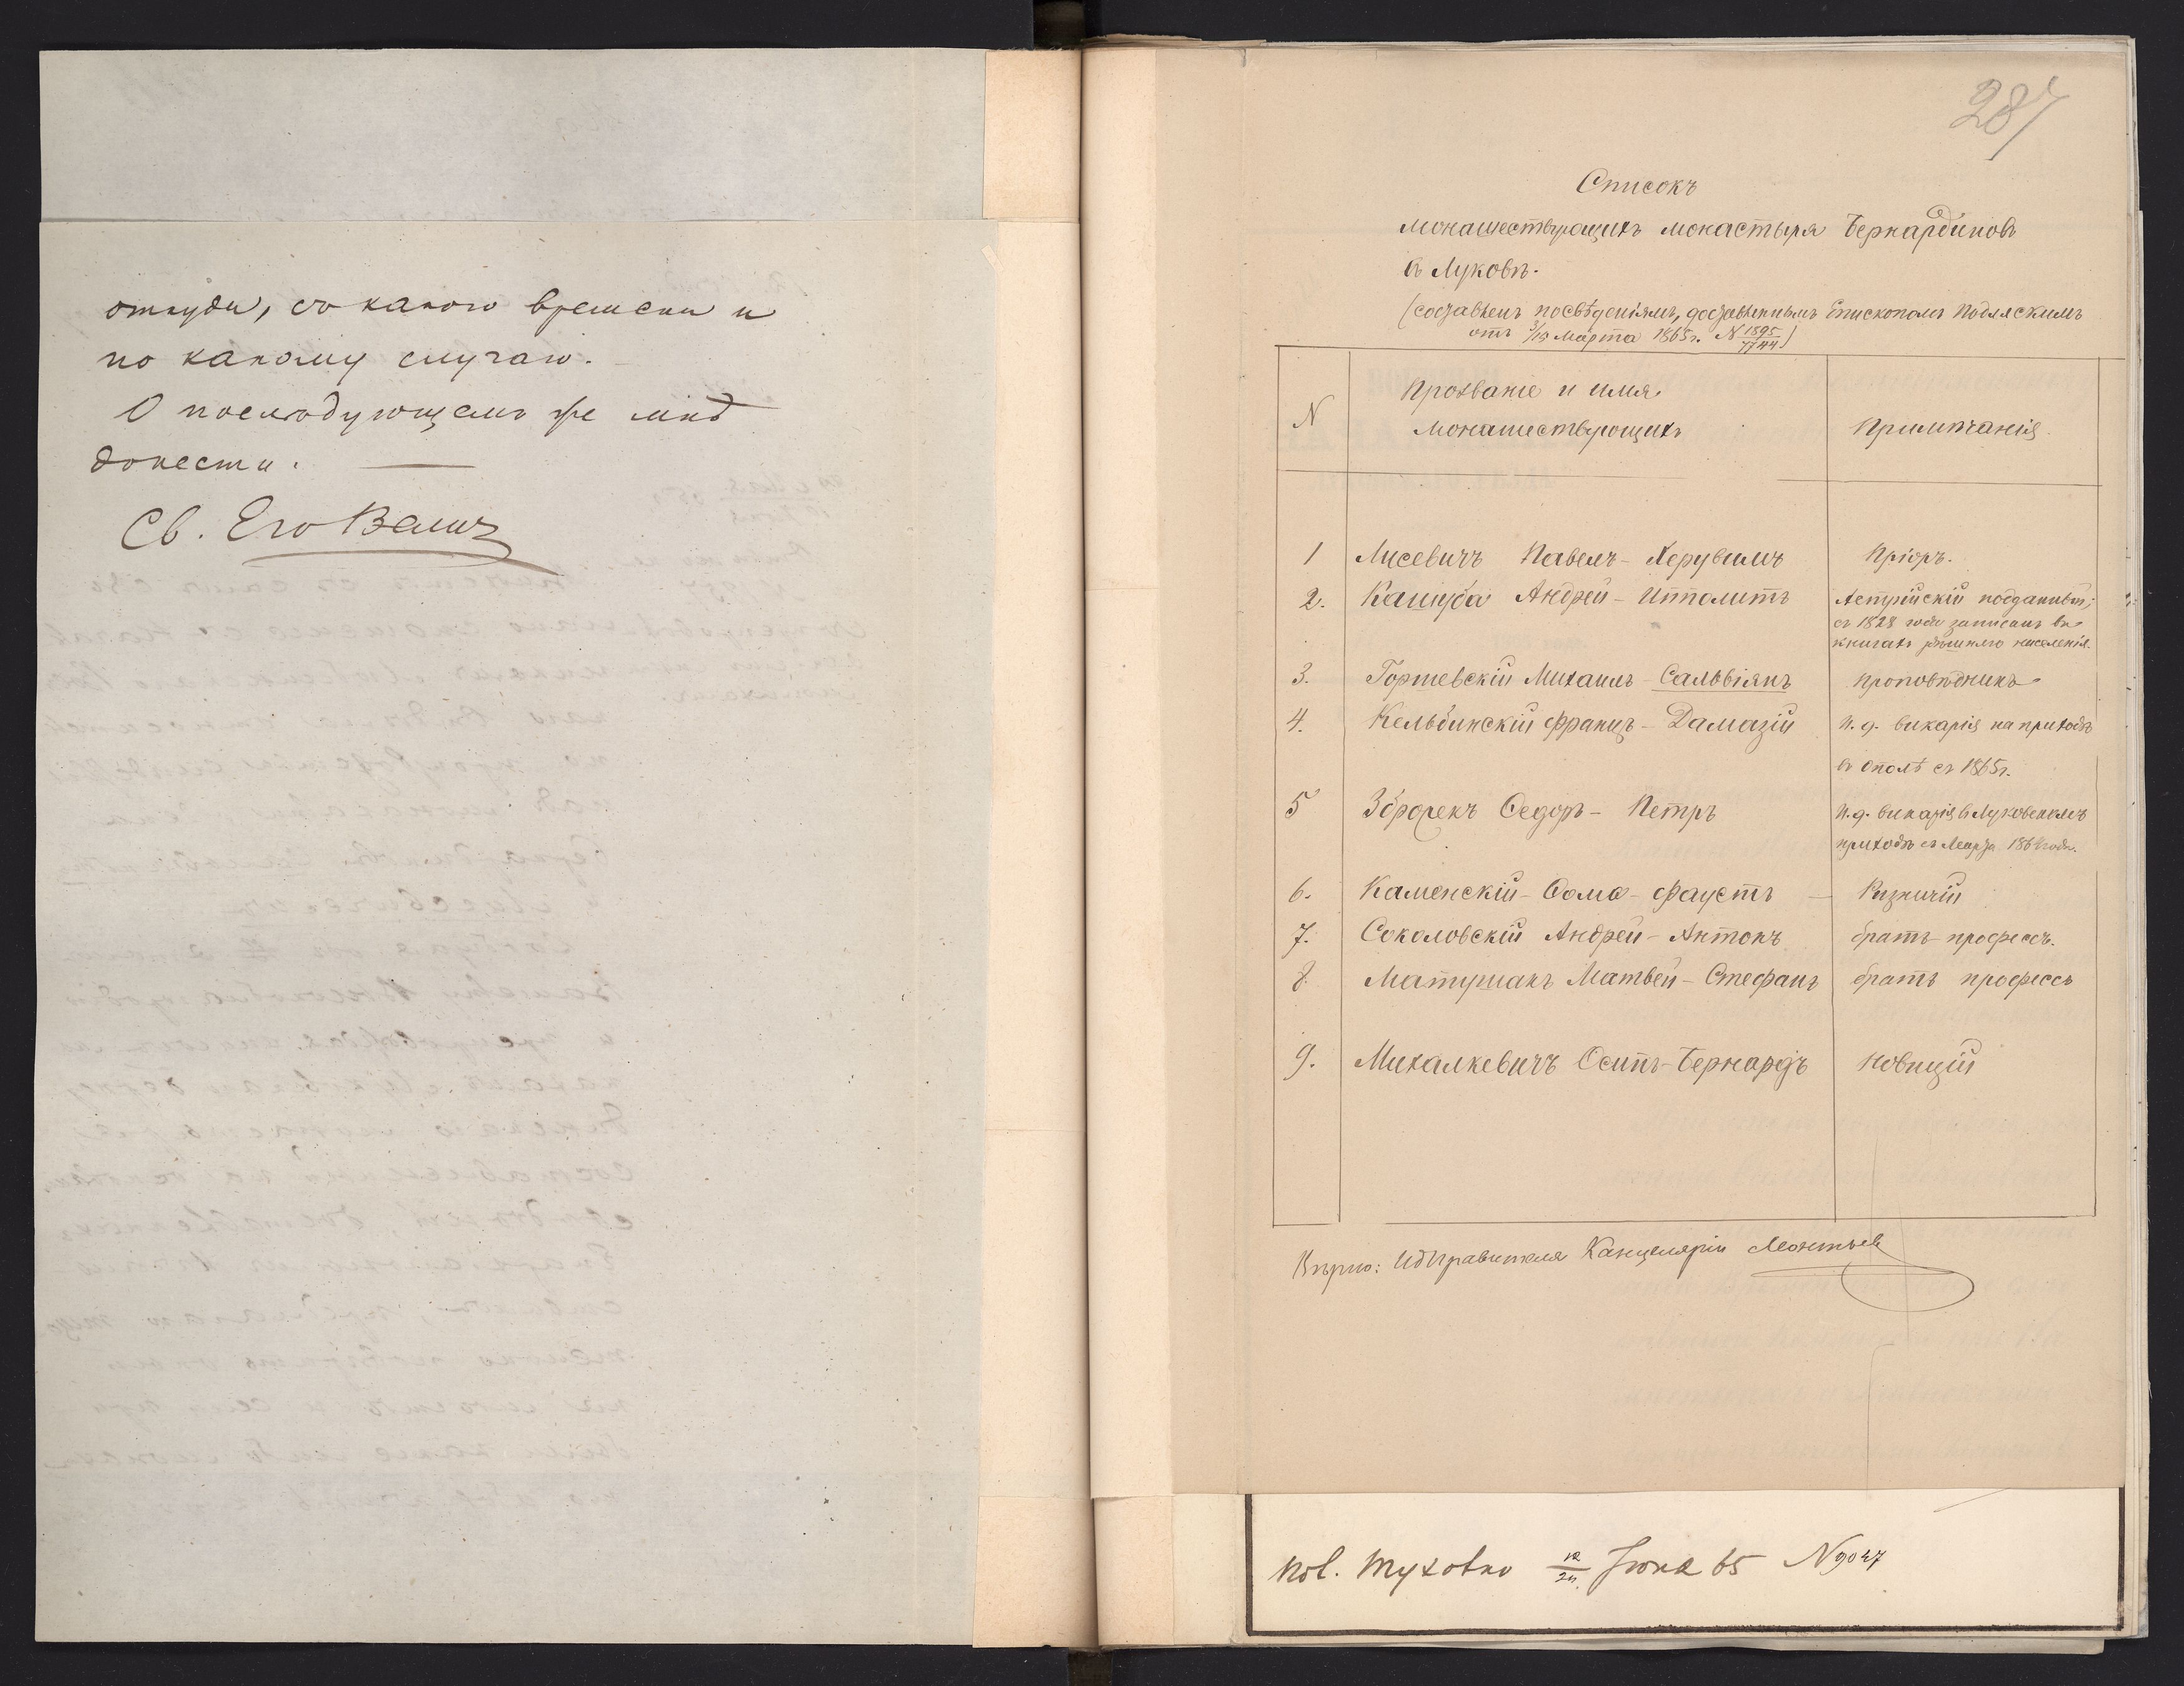 откуда, съ какого времени и
по какому случаю.
О послѣдующемъ же мнѣ
донести.
Св. Его Велич
287
Списокъ
монашествующихъ монастыря Бернардиновъ
въ Луковѣ.
(составленъ по свѣденіямъ, доставленнымъ Епископомъ Подляскимъ
отъ 3/15 Марта 1865г. N 1595/7744)
N
Прозваніе и имя
монашествующихъ
Примѣчанія
1 Лисевичъ Павелъ - Херувимъ Пріоръ.
2. Кашуба Андрей - Ипполитъ Австрійскій подданный;
съ 1828 года записанъ въ
книгахъ здѣшняго населенія.
3. Горшевскій Михаилъ - Сальвіянъ проповѣдникъ
4. Кельбинскій Францъ - Дамазій И. д. викарія на приходѣ
въ Ополѣ съ 1865г.
5 Зброжекъ Ѳедоръ - Петръ И. д. викарія въ Луковскомъ
приходѣ съ Марта года.
6. Каменскій - Ѳома - Фаустъ Ризничій
7. Соколовскій Андрей - Антонъ братъ профессъ.
8. Матушакъ Матвей - Стефанъ братъ профессъ
9. Михалкевичъ Осипъ - Бернардъ Новицій
Вѣрно: Ид Правителя Канцеляріи Леонтьевъ
Пов. Тухолко 12/24 Іюня 65 N 9047